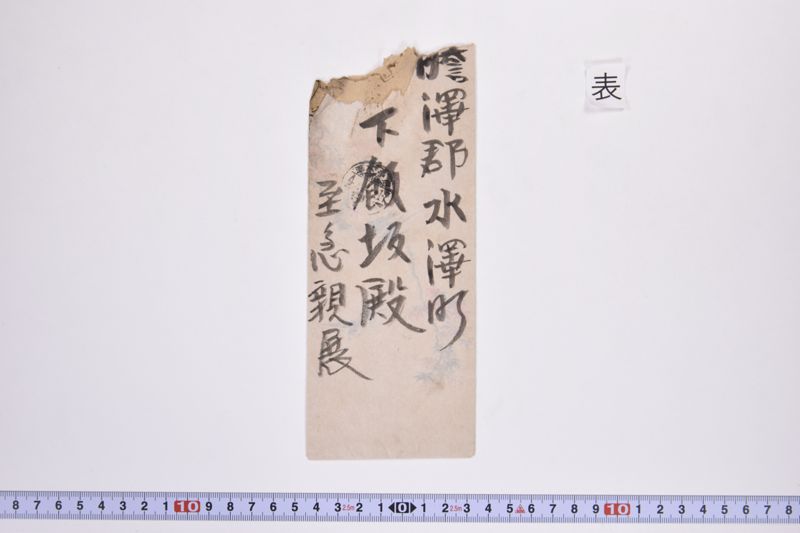 膽澤郡水澤町
下飯坂殿
至急親展
表
8 7 6 5 4 3 2 1 10 9 8 7 6 5 4 3 2.5m 2 1 0 1 2 2.5m 3 4 5 6 7 8 9 10 1 2 3 4 5 6 7 8